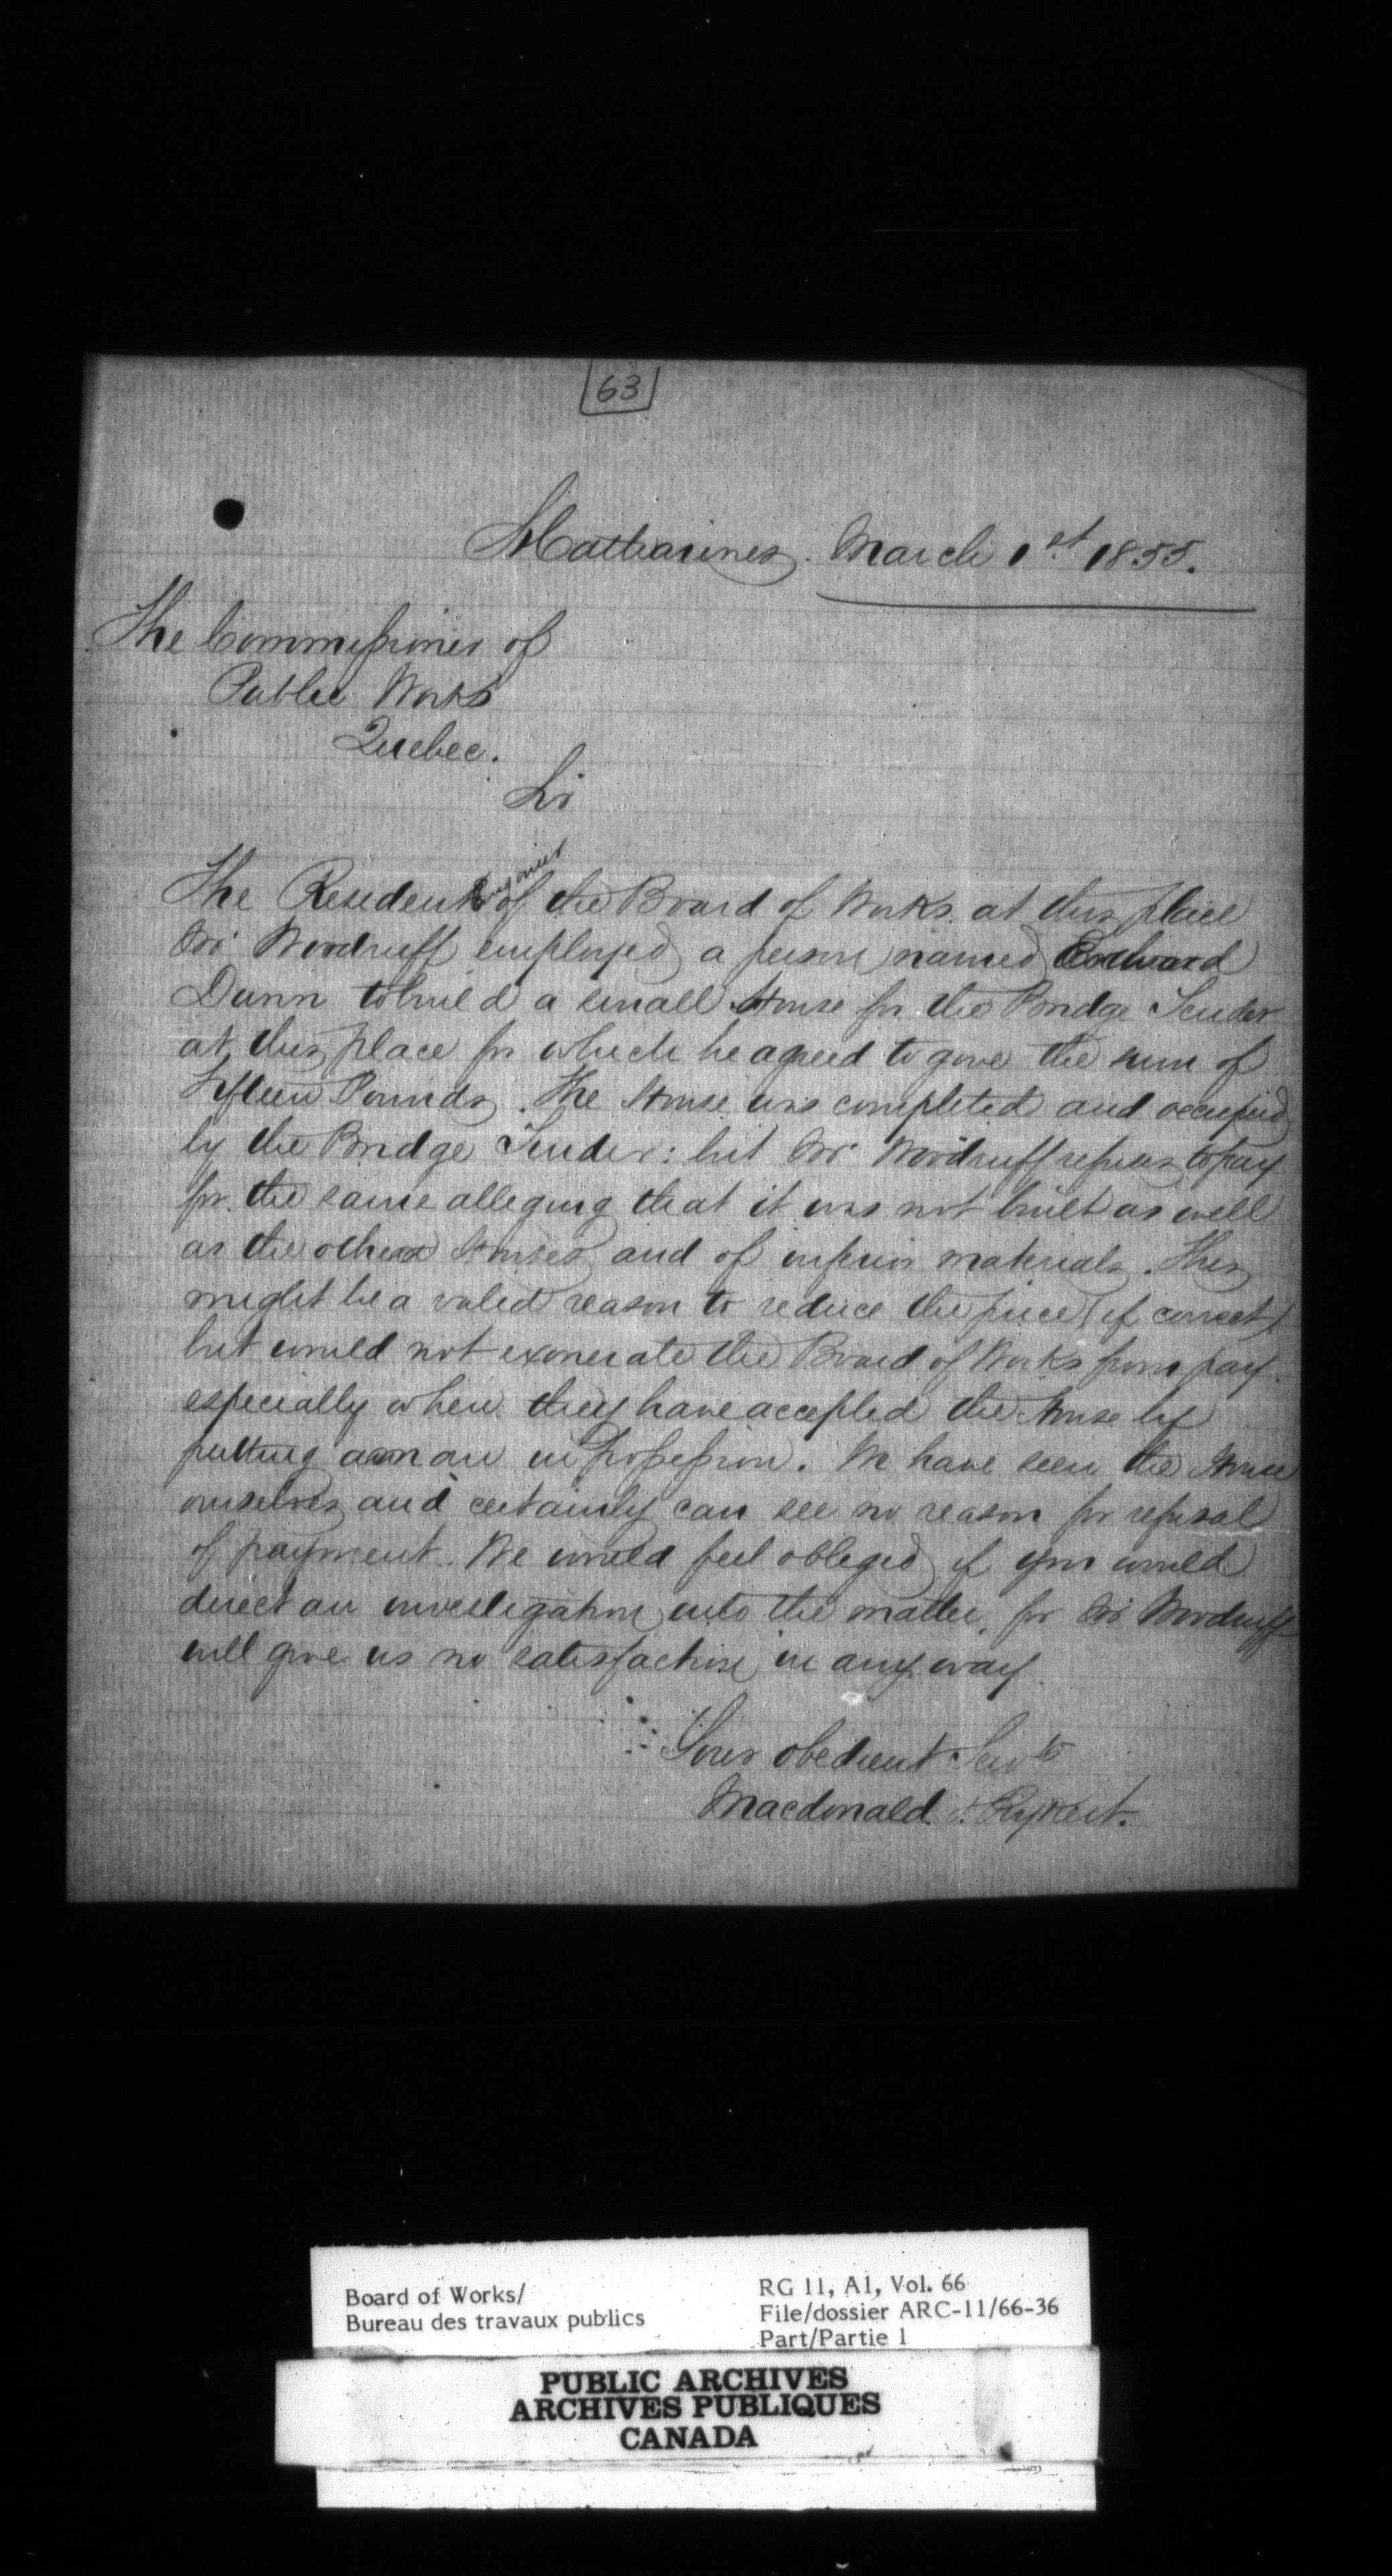 63
St Catharines. March 1st 1855.
The Commissioner of
Public Works
Quebec.
Sir
The Resident Engineer of the Board of Works at this place
Mr Woodruff employed a person named Edward
Dunn to build a small House for the Bridge Tender
at this place for which he agreed to give the sum of
Fifteen Pounds. The House was completed and occupied
by the Bridge Tender: but Mr Woodruff refuses to pay
for the same alleging that it was not built as well
as the other Houses and of inferior materials. This
might be a valid reason to reduce the price (if correct)
but would not exonerate the Board of Works from pay
especially when they have accepted the House by
putting a man in possession. We have seen the House
ourselves and certainly can see no reason for refusal
of payment. We would feel obliged if you would
direct an investigation into the matter, for Mr Woodruff
will give us no satisfaction in any way.
Your obedient Servts
Macdonald & Rykert.
Board of Works/
Bureau des travaux publics
RG 11, A1, Vol. 66
File/dossier ARC-11/66-36
Part/Partie 1
PUBLIC ARCHIVES
ARCHIVES PUBLIQUES
CANADA